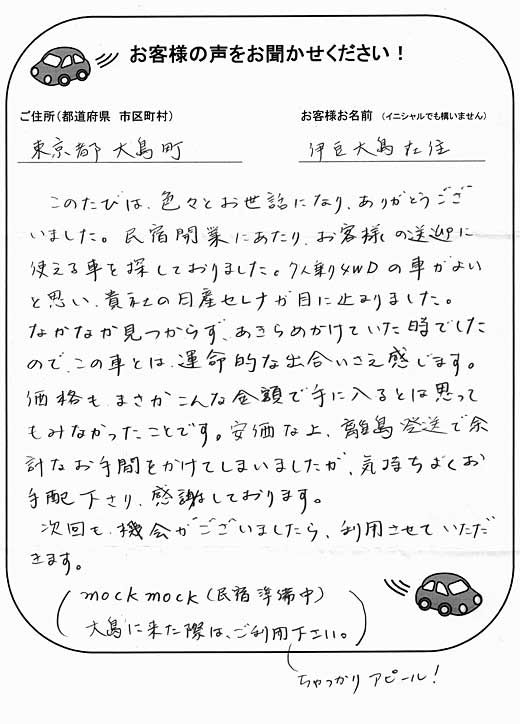 お客様の声をお聞かせください！
ご住所（都道府県 市区町村）
お客様お名前 （イニシャルでも構いません）
東京都 大島町
伊豆大島在住
このたびは、色々とお世話になり、ありがとうござ
いました。民宿開業にあたり、お客様の送迎に
使える車を探しておりました。7人乗り4WDの車がよい
と思い、貴社の日産セレナが目に止まりました。
なかなか見つからず、あきらめかけていた時でした
ので、この車とは、運命的な出合いさえ感じます。
価格も、まさかこんな金額で手に入るとは思って
もみなかったことです。安価な上、離島発送で余
計なお手間をかけてしまいましたが、気持ちよくお
手配下さり、感謝しております。
次回も、機会がございましたら、利用させていただ
きます。
mock mock（民宿準備中）
大島に来た際は、ご利用下さい。
ちゃっかりアピール！